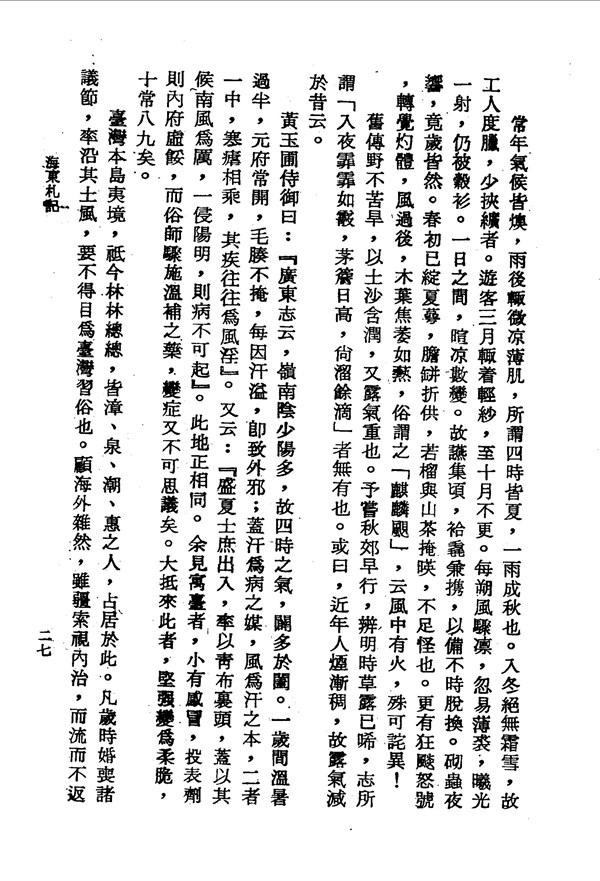 常年氣候皆燠，雨後輒微凉薄肌，所謂四時皆夏，一雨成秋也。入冬絕無霜雪，故
工人度臘，少挾纊者。遊客三月輒着輕紗，至十月不更。每朔風驟凛，忽易薄裘，曦光
一射，仍被縠衫。一日之間，暄凉數變。故讌集頃，袷毳兼携，以備不時脫換。砌蟲夜
響，竟歲皆然。春初已綻夏蕚，膽缾折供，若榴與山茶掩暎，不足怪也。更有狂飈怒號
，轉覺灼體，風過後，木葉焦萎如爇，俗謂之「麒麟颶」，云風中有火，殊可詫異！
舊傳野不苦旱，以土沙含潤，又露氣重也。予嘗秋郊早行，辨明時草露已晞，志所
謂「入夜霏霏如霰，茅簷日高，尙溜餘滴」者無有也。或曰，近年人煙漸稠，故露氣減
於昔云。
黃玉圃侍御曰：『廣東志云，嶺南陰少陽多，故四時之氣，闢多於闔。一歲間溫暑
過半，元府常開，毛腠不掩，每因汗溢，卽致外邪；蓋汗爲病之媒，風爲汗之本，二者
一中，寒瘧相乘，其疾往往爲風淫』。又云：『盛夏士庶出入，率以靑布裹頭，蓋以其
候南風爲厲，一侵陽明，則病不可起』。此地正相同。余見寓臺者，小有感冒，投表劑
則內府虛餒，而俗師驟施溫補之藥，變症又不可思議矣。大抵來此者，堅强變爲柔脆，
十常八九矣。
臺灣本島夷境，祗今林林總總，皆漳、泉、潮、惠之人，占居於此。凡歲時婚喪諸
議節，率沿其土風，要不得目爲臺灣習俗也。顧海外雜然，雖疆索視內治，而流而不返
海東札記
二七